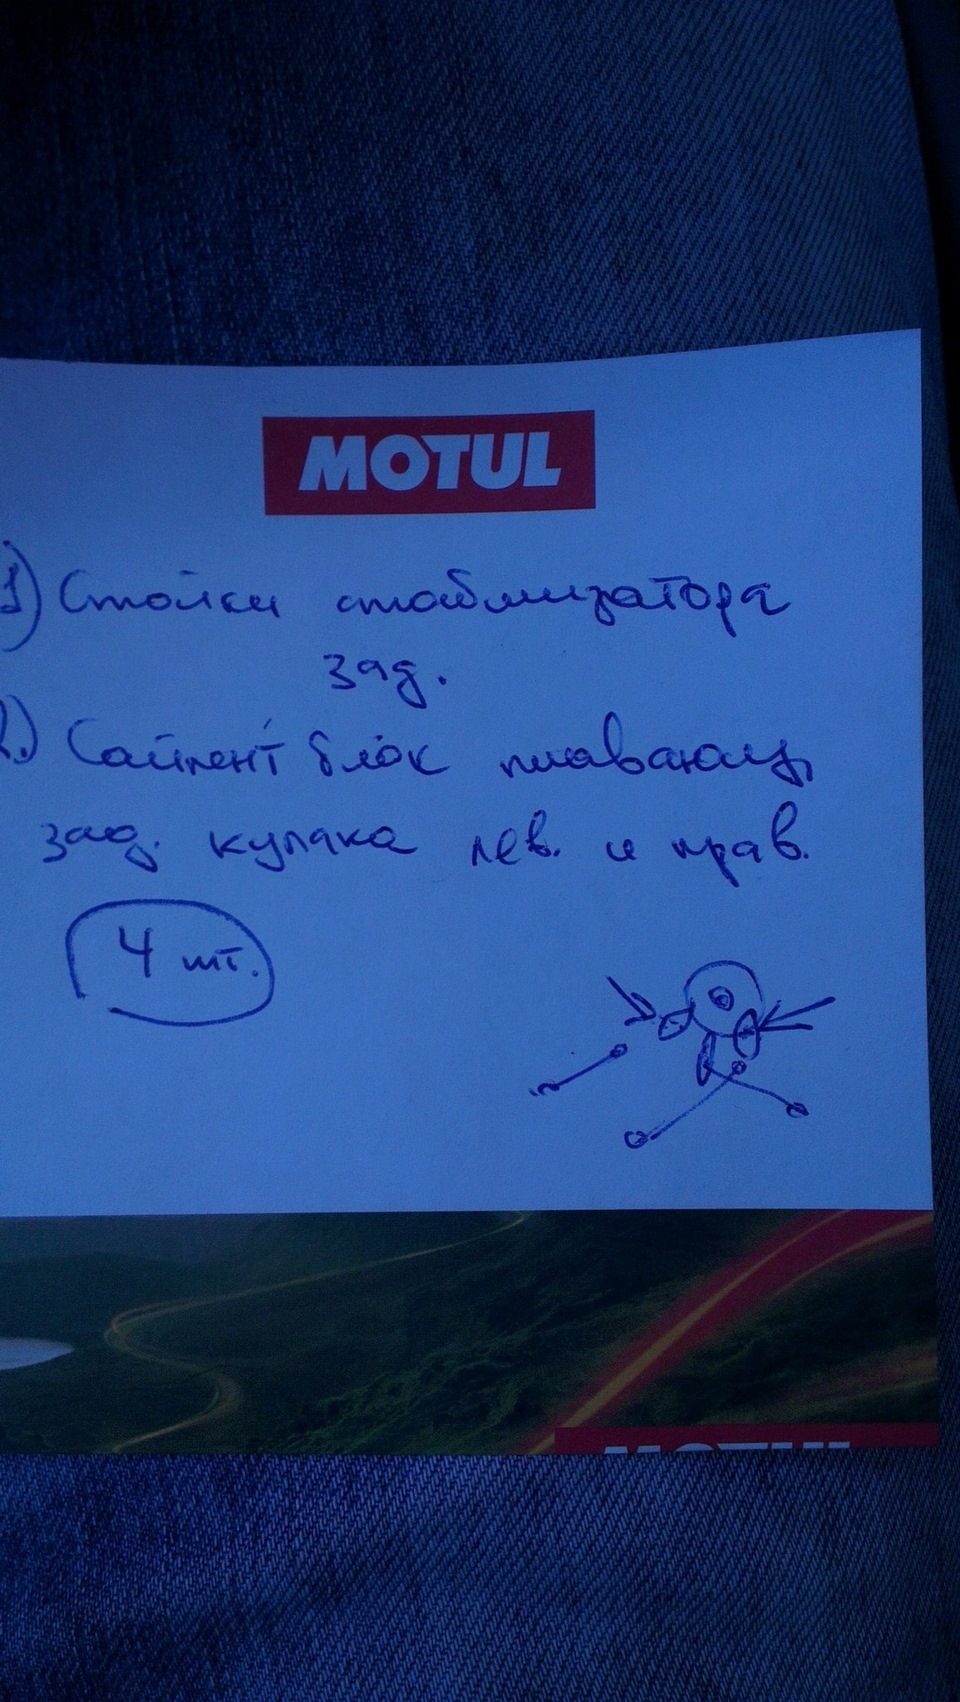 MOTUL
1) Стойки стабилизатора
зад.
2.) Сайлент блок плавающ.
зад. кулака лев. и прав.
4 шт.
MOTUL